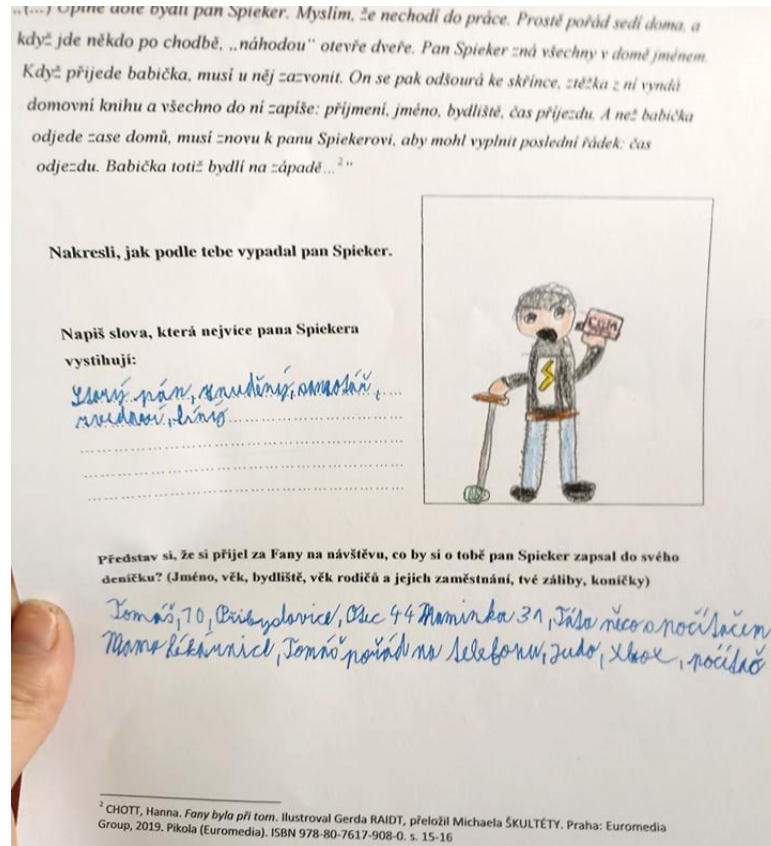 „(...) Úplně dole bydlí pan Spieker. Myslím, že nechodí do práce. Prostě pořád sedí doma, a
když jde někdo po chodbě, „náhodou“ otevře dveře. Pan Spieker zná všechny v domě jménem.
Když přijede babička, musí u něj zazvonit. On se pak odšourá ke skřínce, ztěžka z ní vyndá
domovní knihu a všechno do ní zapíše: příjmení, jméno, bydliště, čas příjezdu. A než babička
odjede zase domů, musí znovu k panu Spiekerovi, aby mohl vyplnit poslední řádek: čas
odjezdu. Babička totiž bydlí na západě...²“
Nakresli, jak podle tebe vypadal pan Spieker.
Napiš slova, která nejvíce pana Spiekera
vystihují:
Starý pán, znuděný, samotář,
zvědaví, líný
Představ si, že si přijel za Fany na návštěvu, co by si o tobě pan Spieker zapsal do svého
deníčku? (Jméno, věk, bydliště, věk rodičů a jejich zaměstnání, tvé záliby, koníčky)
Tomáš, 10, Přibyslavice, Otec 44 Maminka 31, Táta něco s počítačem
Mama lékárnice, Tomáš pořád na telefonu, judo, Xbox, počítač
² CHOTT, Hanna. Fany byla při tom. Ilustroval Gerda RAIDT, přeložil Michaela ŠKULTÉTY. Praha: Euromedia
Group, 2019. Pikola (Euromedia). ISBN 978-80-7617-908-0. s. 15-16